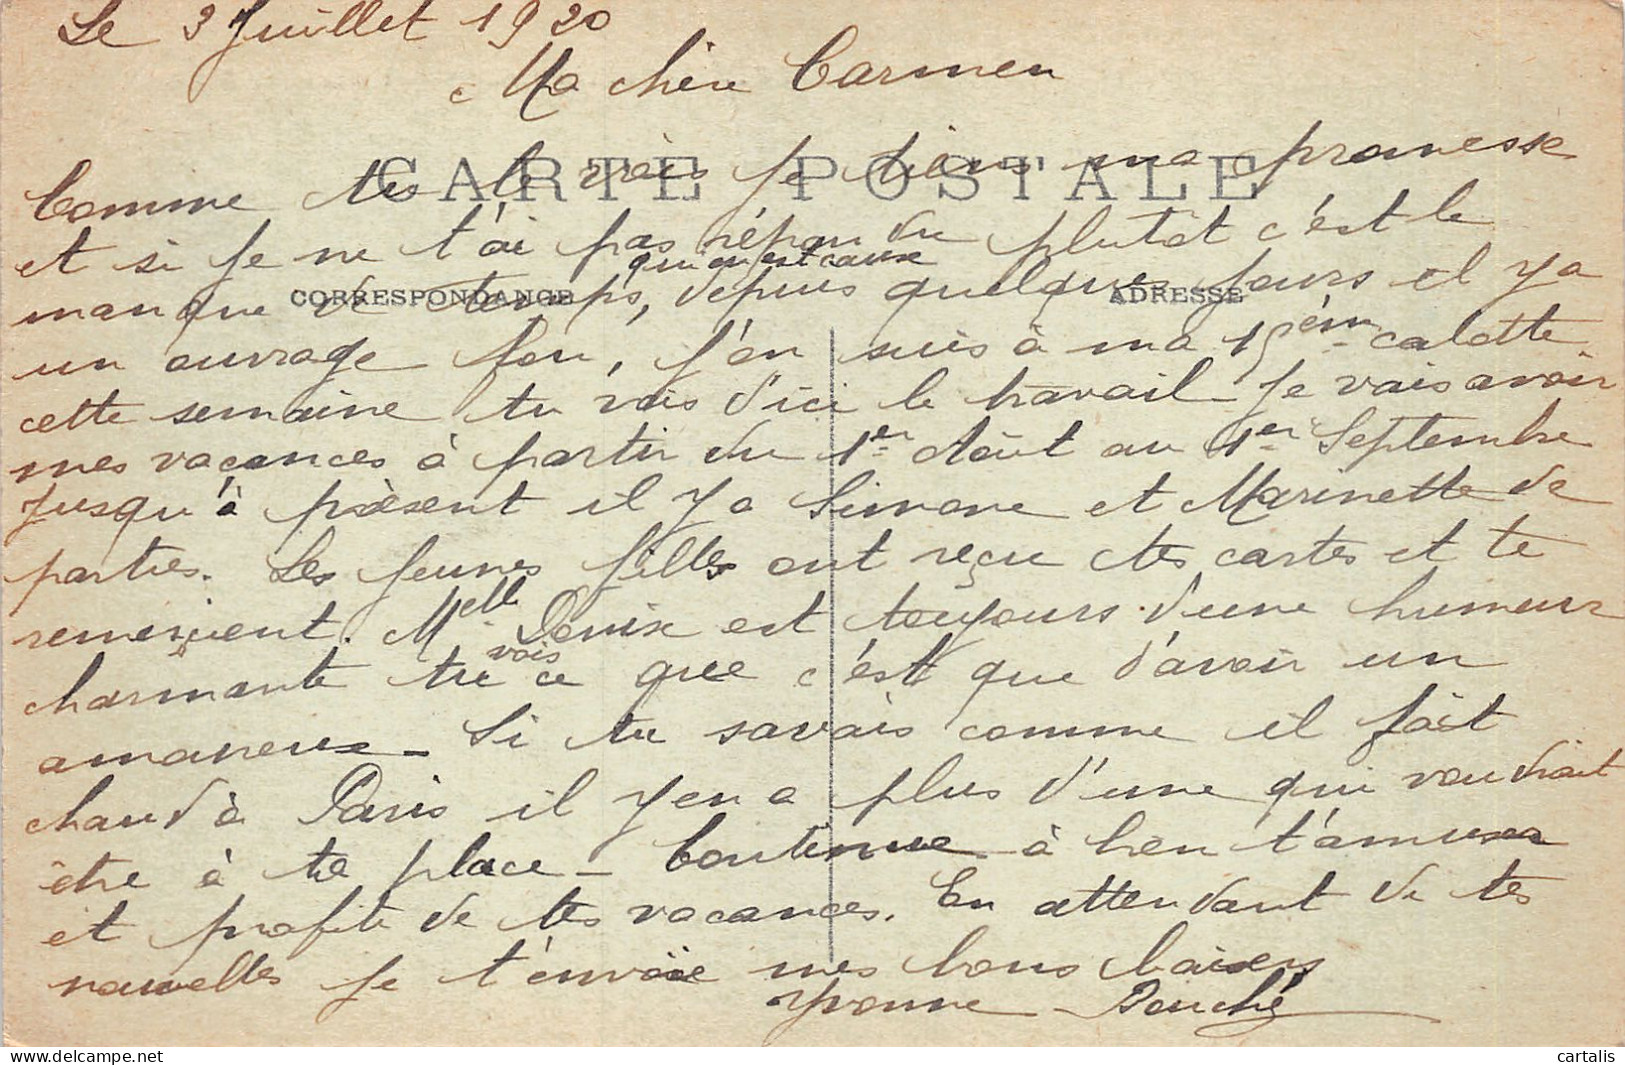 Le 3 Juillet 1920
Ma chère Carmen
CARTE POSTALE
Comme tu le vois je tiens ma promesse
et si je ne t'ai pas répondu plutôt c'est le
qui en est cause
manque de temps, depuis quelques jours il y a
CORRESPONDANCE
ADRESSE
un ouvrage fou, j'en suis à ma 15ème calotte
cette semaine tu vois d'ici le travail - Je vais avoir
mes vacances à partir du 1er Août au 1er Septembre
Jusqu'à présent il y a Simone et Marinette de
parties. Les jeunes filles ont reçu tes cartes et te
remerçient. Melle Denise est toujours d'une humeur
charmante tu vois ce que c'est que d'avoir un
amoureux - Si tu savais comme il fait
chaud à Paris il y en a plus d'une qui voudrait
être à ta place - Continue à bien t'amuser
et profite de tes vacances. En attendant de tes
nouvelles je t'envoie mes bons baisers
Yvonne Douché
cartalis